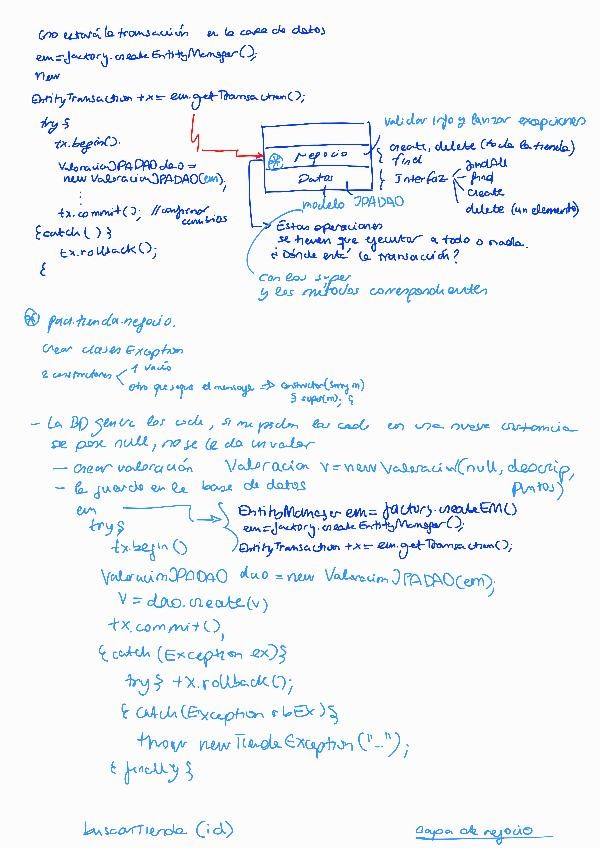 no estará la transacción en la capa de datos
em=factory.createEntityManager();
new
EntityTransaction tx= em.getTransaction();
try{
tx.begin().
ValoracionJPADAO dao =
new ValoracionJPADAO(em);
⋮
tx.commit(); //confirmar
cambios
}catch( ) }
tx.rollback();
{
validar info y lanzar excepciones
Negocio
create, delete (toda la tienda)
find
Datos
Interfaz
findAll
find
create
delete (un elemento)
modelo JPADAO
Estas operaciones
se tienen que ejecutar a todo o nada.
¿Dónde está la transacción?
con los super
y los métodos correspondientes
pact.tienda.negocio.
crear clases Exception
2 constructores
1 vacío
otro que saque el mensaje => constructor(String m)
{ super(m); }
- La BD genera los code, si me piden los code en una nueva instancia
se pone null, no se le da un valor
- crear valoración Valoracion v=new Valoracion(null, descrip,
puntos)
- la guardo en la base de datos
em
EntityManager em= factory.createEM()
em=factory.createEntityManager();
EntityTransaction tx= em.getTransaction();
try{
tx.begin()
ValoracionJPADAO dao = new ValoracionJPADAO(em);
V = dao.create(v)
tx.commit();
{catch (Exception ex)}
try} tx.rollback();
{catch(Exception rbEx)}
throw new TiendaException("...");
{ finally }
buscarTienda (id)
capa de negocio